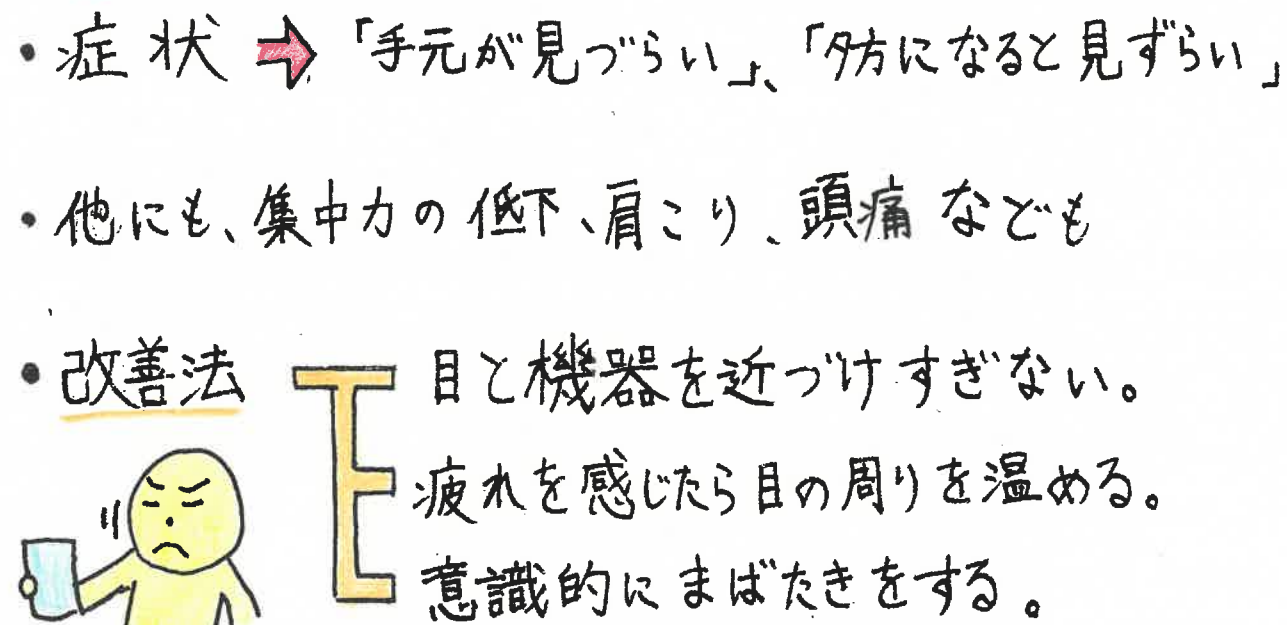 ・症状 ➡ 「手元が見づらい」、「夕方になると見ずらい」
・他にも、集中力の低下、肩こり、頭痛なども
・改善法 目と機器を近づけすぎない。
疲れを感じたら目の周りを温める。
意識的にまばたきをする。